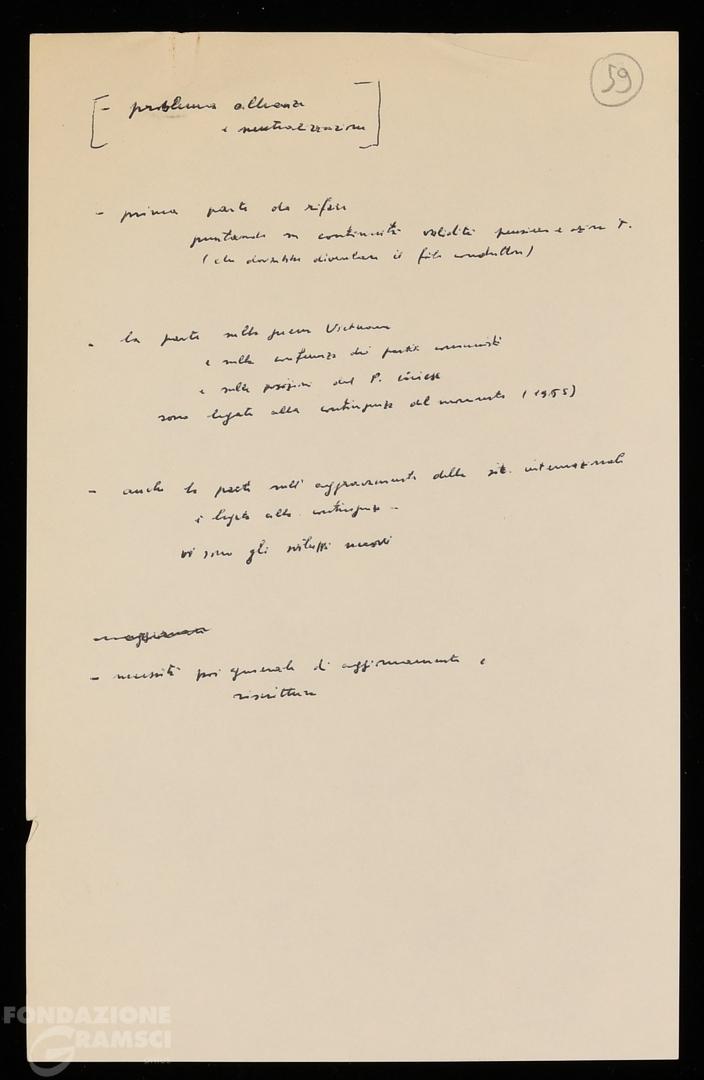 59
[- problema alleanze
e neutralizzazione]
- prima parte da rifare
puntando su continuità validità pensiero e azione T.
(che dovrebbe diventare il filo conduttore)
- la parte sulla guerra Vietnam
e sulla conferenza dei partiti comunisti
e sulle posizioni del P. cinese
sono legate alla contingenza del momento (1965)
- anche la parte sull'aggravamento della sit. internazionale
è legata alla contingenza -
vi sono gli sviluppi recenti
- necessità poi generale di aggiornamento e
riscrittura
FONDAZIONE
GRAMSCI